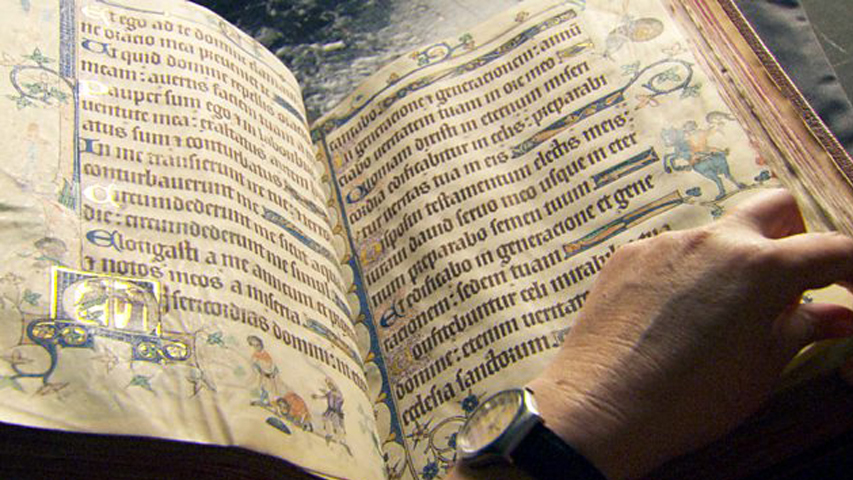 Et ego ad te domine clam
ne oratio mea preueniet te
Ut quid domine repellis
meam: auertis faciem tuam
Pauper sum ego ⁊ in laboribus
uentute mea: exaltatus autem
atus sum ⁊ conturbatus
In me transierunt ire tue: ⁊
conturbauerunt me
Circumdederunt me sicut aqua
die: circumdederunt me simul
Elongasti a me amicum et
⁊ notos meos a miseria
isericordias domini: in
cantabo
In generatione ⁊ generationem: annū
ciabo ueritatem tuam in ore meo
Quoniam dixisti in eternum miseri
cordia edificabitur in celis: preparabi
tur ueritas tua in eis
Disposui testamentum electis meis:
iuraui dauid seruo meo usque in eter
num preparabo semen tuum
Et edificabo in generatione et gene
rationem: sedem tuam
Confitebuntur celi mirabilia tua
domine: etenim ueritatē
ecclesia sanctorum